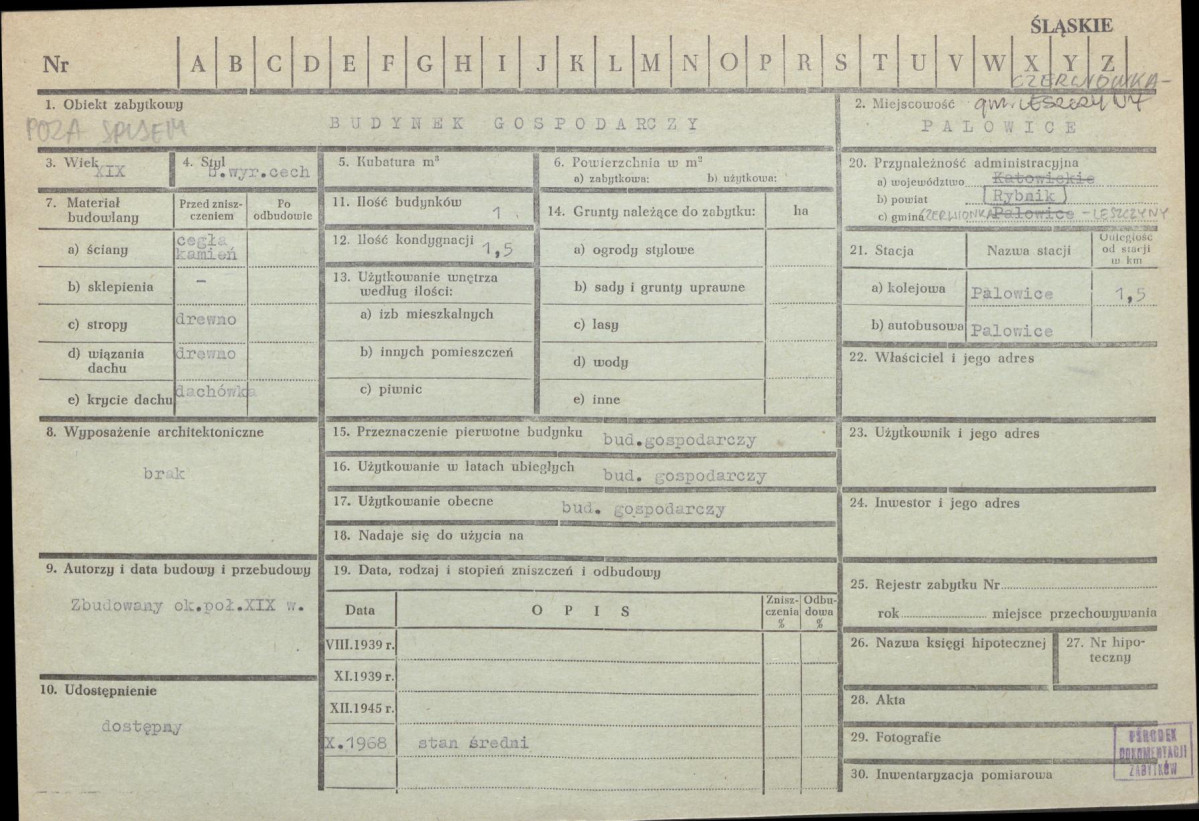 ŚLĄSKIE
Nr A B C D E F G H I J K L M N O P R S T U V W X Y Z
CZERWIONKA-
1. Obiekt zabytkowy
POZA SPISEM
BUDYNEK GOSPODARCZY
2. Miejscowość gm. LESZCZYNY
PALOWICE
3. Wiek
XIX
4. Styl
B.wyr.cech
5. Kubatura m³
6. Powierzchnia w m²
a) zabytkowa: b) użytkowa:
7. Materiał budowlany
Przed zniszczeniem
Po odbudowie
a) ściany cegła kamień
b) sklepienia –
c) stropy drewno
d) wiązania dachu drewno
e) krycie dachu dachówka
11. Ilość budynków 1
12. Ilość kondygnacji 1,5
13. Użytkowanie wnętrza według ilości:
a) izb mieszkalnych
b) innych pomieszczeń
c) piwnic
14. Grunty należące do zabytku: ha
a) ogrody stylowe
b) sady i grunty uprawne
c) lasy
d) wody
e) inne
20. Przynależność administracyjna
a) województwo Katowickie
b) powiat Rybnik
c) gmina CZERWIONKA Palowice - LESZCZYNY
21. Stacja
Nazwa stacji
Odległość od stacji w km
a) kolejowa Palowice 1,5
b) autobusowa Palowice
22. Właściciel i jego adres
8. Wyposażenie architektoniczne
brak
15. Przeznaczenie pierwotne budynku bud.gospodarczy
16. Użytkowanie w latach ubiegłych bud. gospodarczy
17. Użytkowanie obecne bud. gospodarczy
18. Nadaje się do użycia na
23. Użytkownik i jego adres
24. Inwestor i jego adres
9. Autorzy i data budowy i przebudowy
Zbudowany ok.poł.XIX w.
10. Udostępnienie
dostępny
19. Data, rodzaj i stopień zniszczeń i odbudowy
Data
OPIS
Zniszczenia %
Odbudowa %
VIII.1939 r.
XI.1939 r.
XII.1945 r.
X.1968 stan średni
25. Rejestr zabytku Nr
rok miejsce przechowywania
26. Nazwa księgi hipotecznej
27. Nr hipoteczny
28. Akta
29. Fotografie
30. Inwentaryzacja pomiarowa
OŚRODEK
DOKUMENTACJI
ZABYTKÓW